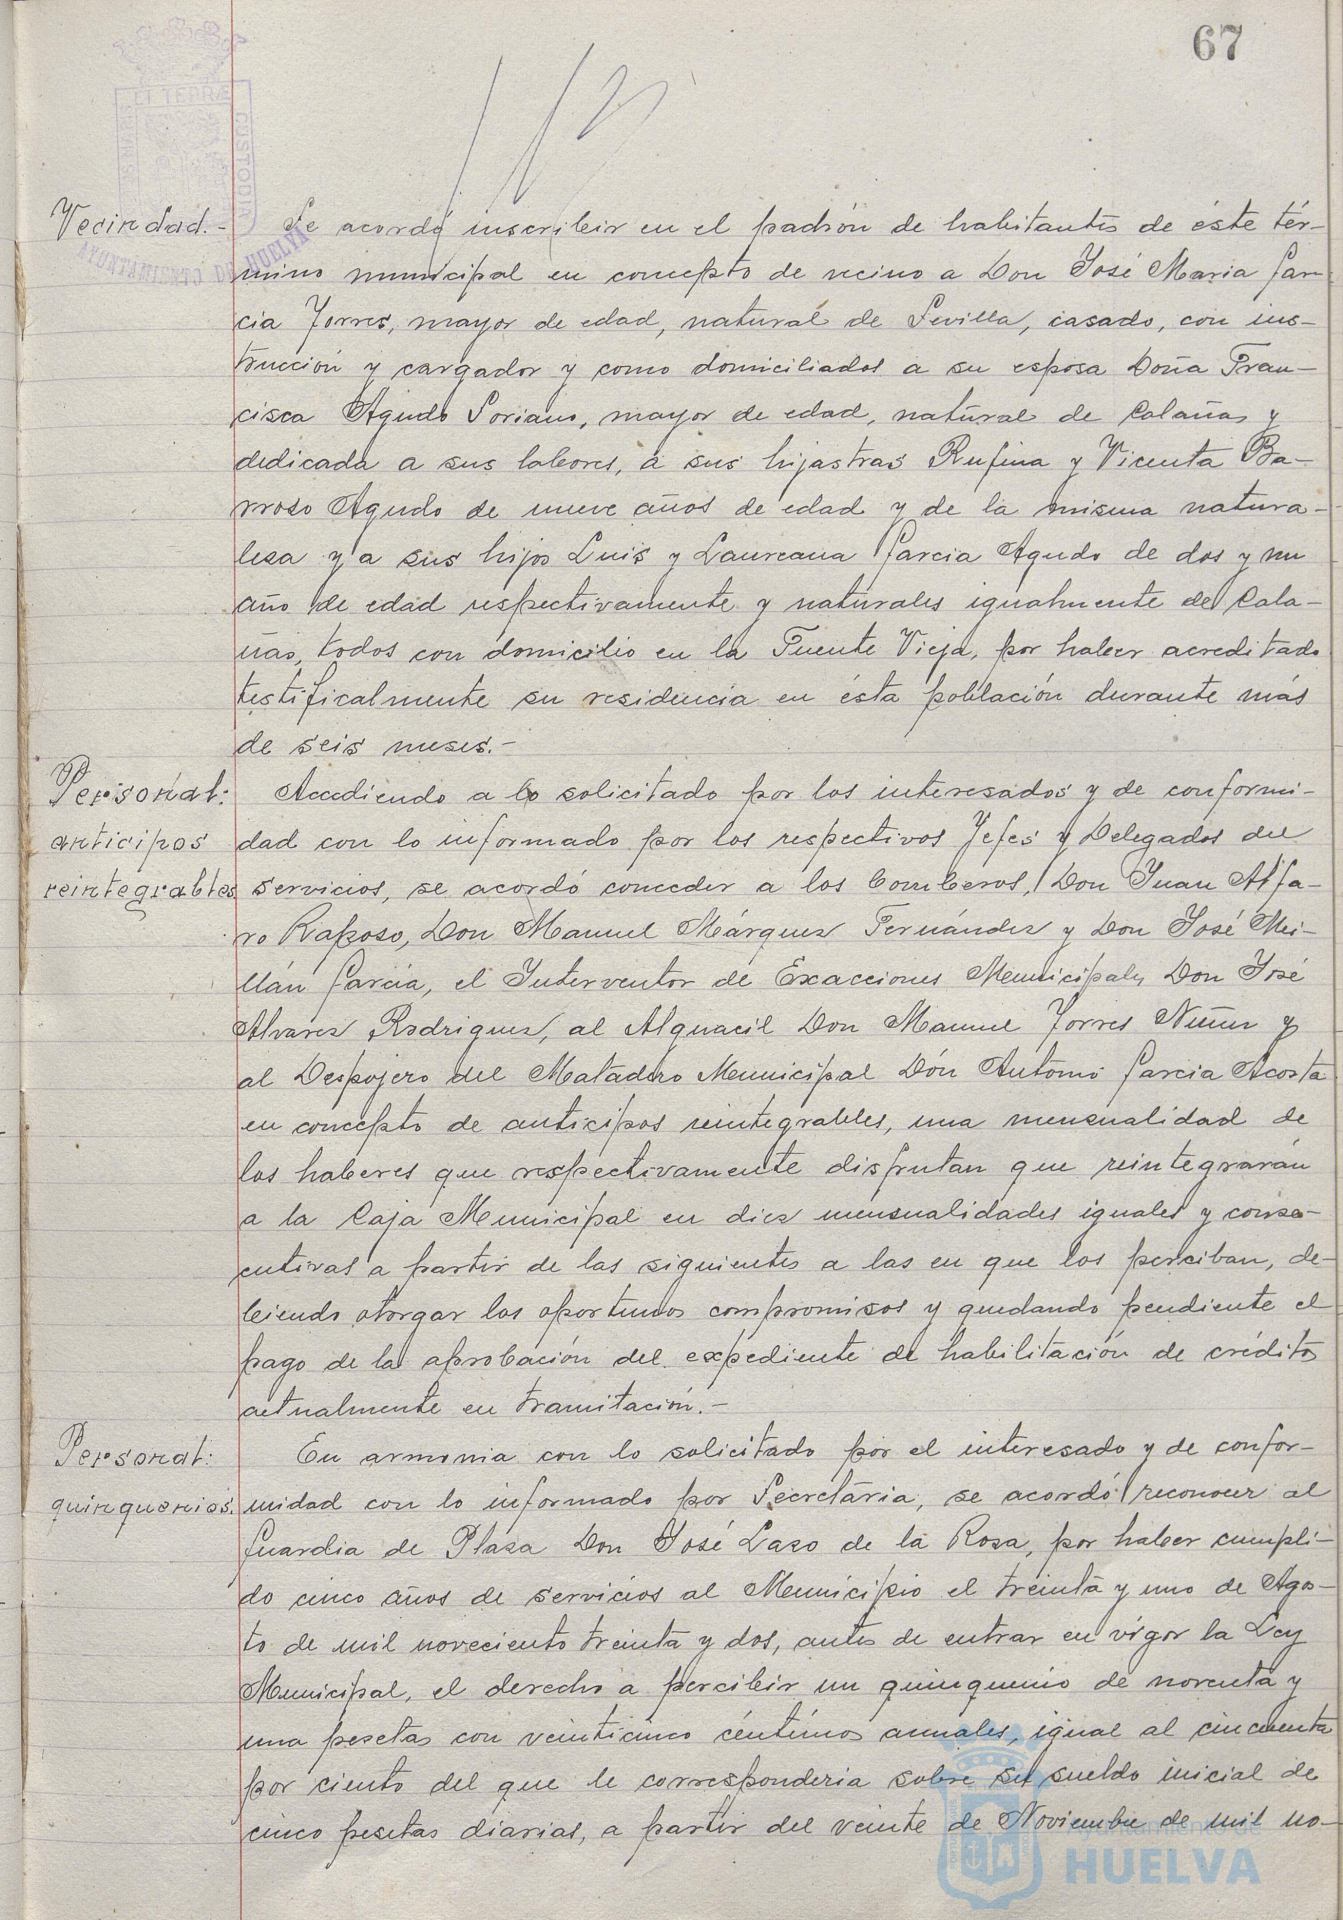 67
PORTUS MARIS
ET TERRÆ
CUSTODIA
AYUNTAMIENTO DE HUELVA
Vecindad.- Se acordó inscribir en el padrón de habitantes de éste tér-
mino municipal en concepto de vecino a Don José Maria Gar-
cia Torres, mayor de edad, natural de Sevilla, casado, con ins-
trucción y cargador y como domiciliados a su esposa Doña Fran-
cisca Agudo Soriano, mayor de edad, natural de Calañas y
dedicada a sus labores, a sus hijastras Rufina y Vicenta Ba-
rroso Agudo de nueve años de edad y de la misma natura-
leza y a sus hijos Luis y Laureana Garcia Agudo de dos y un
año de edad respectivamente y naturales igualmente de Cala-
ñas, todos con domicilio en la Fuente Vieja, por haber acreditado
testificalmente su residencia en ésta población durante más
de seis meses.-
Personal: Accediendo a lo solicitado por los interesados y de conformi-
anticipos dad con lo informado por los respectivos Jefes y Delegados del
reintegrables servicios, se acordó conceder a los bomberos, Don Juan Alfa-
ro Raposo, Don Manuel Márquez Fernández y Don José Mi-
llán García, el Interventor de Exacciones Municipales Don José
Alvarez Rodriguez, al Alguacil Don Manuel Torres Nuñez y
al Despojero del Matadero Municipal Dón Antonio Garcia Acosta
en concepto de anticipos reintegrables, una mensualidad de
los haberes que respectivamente disfrutan que reintegrarán
a la Caja Municipal en diez mensualidades iguales y conse-
cutivas a partir de las siguientes a las en que los perciban, de-
biendo otorgar los oportunos compromisos y quedando pendiente el
pago de la aprobación del expediente de habilitación de créditos
actualmente en tramitación.-
Personal: En armonia con lo solicitado por el interesado y de confor-
quinquenios. midad con lo informado por Secretaria, se acordó reconocer al
Guardia de Plaza Don José Lazo de la Rosa, por haber cumpli-
do cinco años de servicios al Municipio el treinta y uno de Agos-
to de mil noveciento treinta y dos, antes de entrar en vigor la Ley
Municipal, el derecho a percibir un quinquenio de noventa y
una pesetas con veinticinco céntimos anuales, igual al cincuenta
por ciento del que le corresponderia sobre su sueldo inicial de
cinco pesetas diarias, a partir del veinte de Noviembre de mil no-
Ayuntamiento de
HUELVA